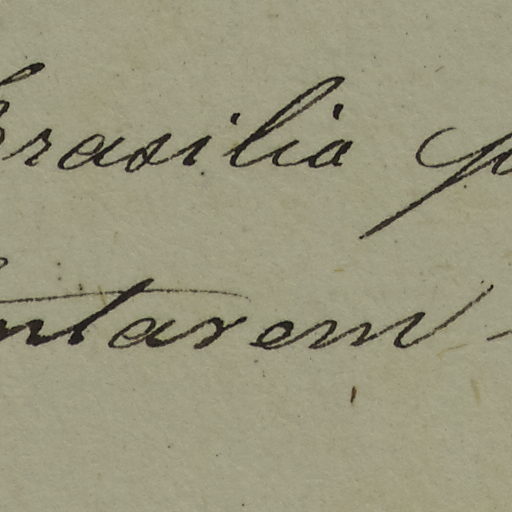 Brasilia p
ntarem -